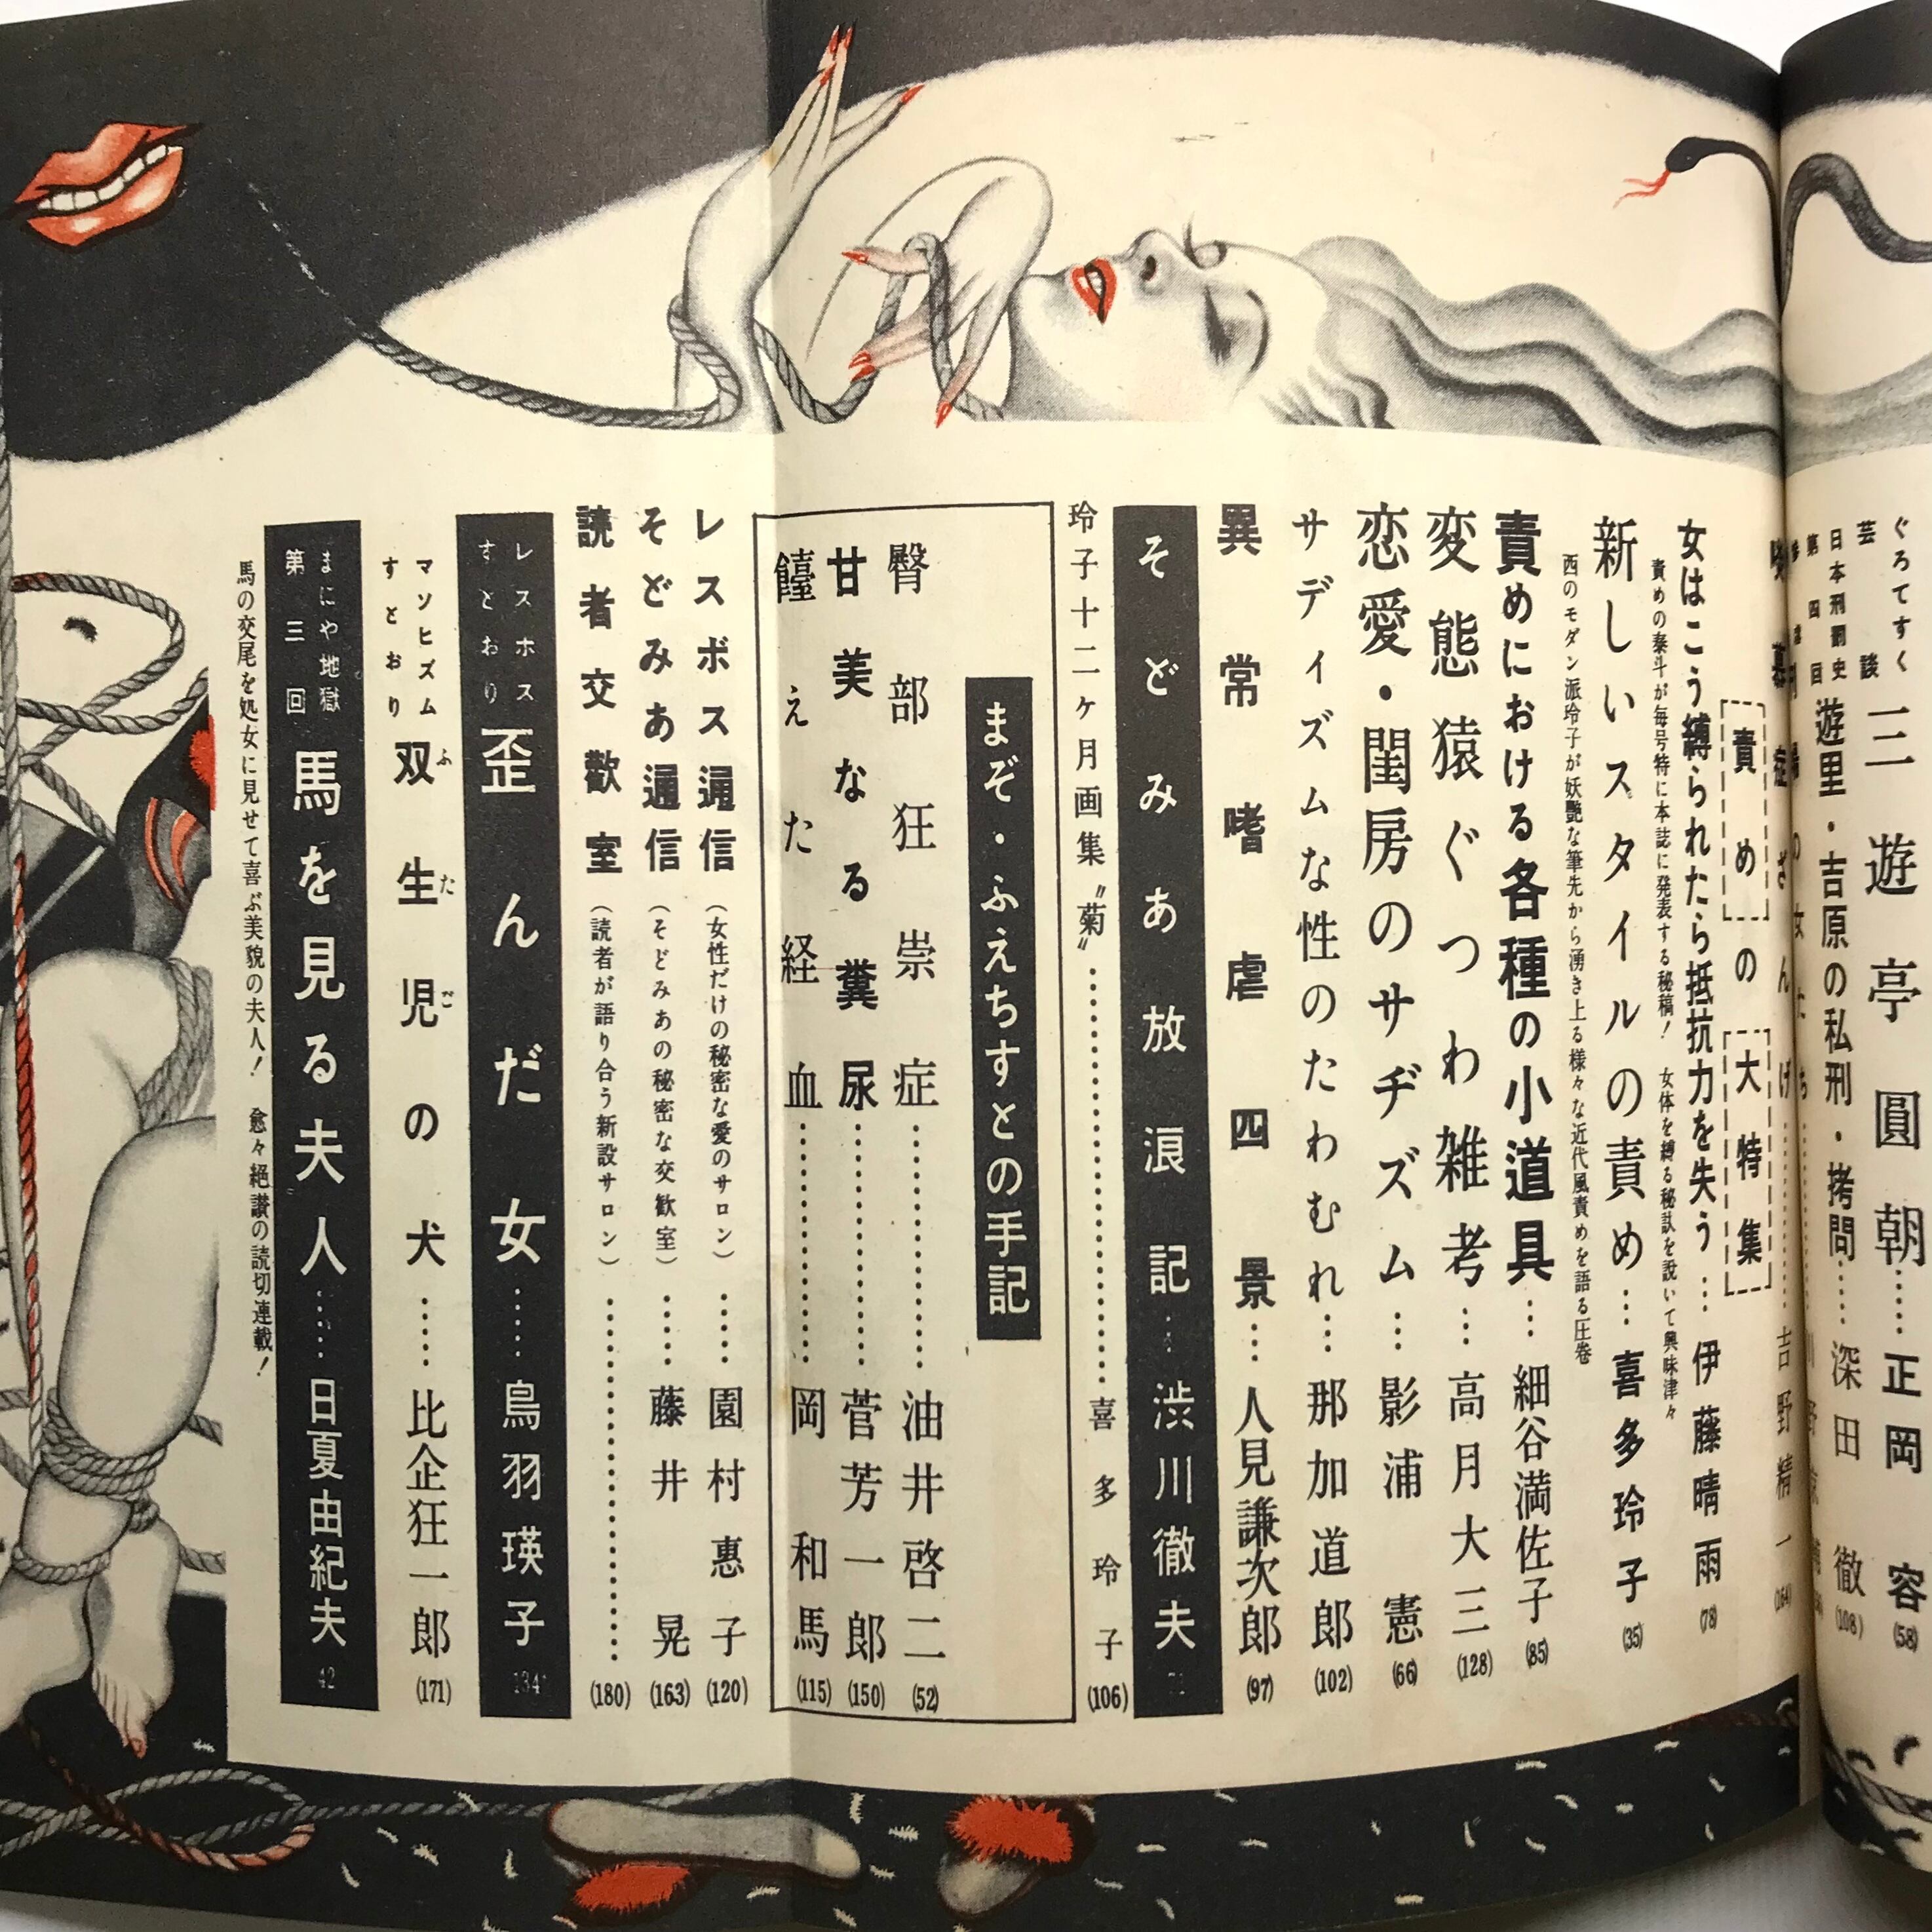 ぐろてすく
芸談
三遊亭圓朝……正岡容(58)
日本刑罰史
第四回
遊里・吉原の私刑・拷問……深田徹(108)
吉野精一(164)
責めの大特集
女はこう縛られたら抵抗力を失う…伊藤晴雨(78)
責めの泰斗が毎号特に本誌に発表する秘稿! 女体を縛る秘訣を説いて興味津々
新しいスタイルの責め…喜多玲子(35)
西のモダン派玲子が妖艶な筆先から湧き上る様々な近代風責めを語る圧巻
責めにおける各種の小道具…細谷満佐子(85)
変態猿ぐつわ雑考…高月大三(128)
恋愛・閨房のサヂズム…影浦憲(66)
サディズムな性のたわむれ…那加道郎(102)
異常嗜虐四景…人見謙次郎(97)
そどみあ放浪記…渋川徹夫71
玲子十二ヶ月画集〝菊〟……喜多玲子(106)
まぞ・ふえちすとの手記
臀部狂崇症……油井啓二(52)
甘美なる糞尿……菅芳一郎(150)
饐えた経血……岡和馬(115)
レスボス通信(女性だけの秘密な愛のサロン)……園村惠子(120)
そどみあ通信(そどみあの秘密な交歓室)……藤井晃(163)
読者交歡室(読者が語り合う新設サロン)……(180)
レスボス
すとおり
歪んだ女……鳥羽瑛子134
マソヒズム
すとおり
双生児の犬……比企狂一郎(171)
ふたご
まにや地獄
第三回
馬を見る夫人……日夏由紀夫42
馬の交尾を処女に見せて喜ぶ美貌の夫人! 愈々絕讃の読切連載!